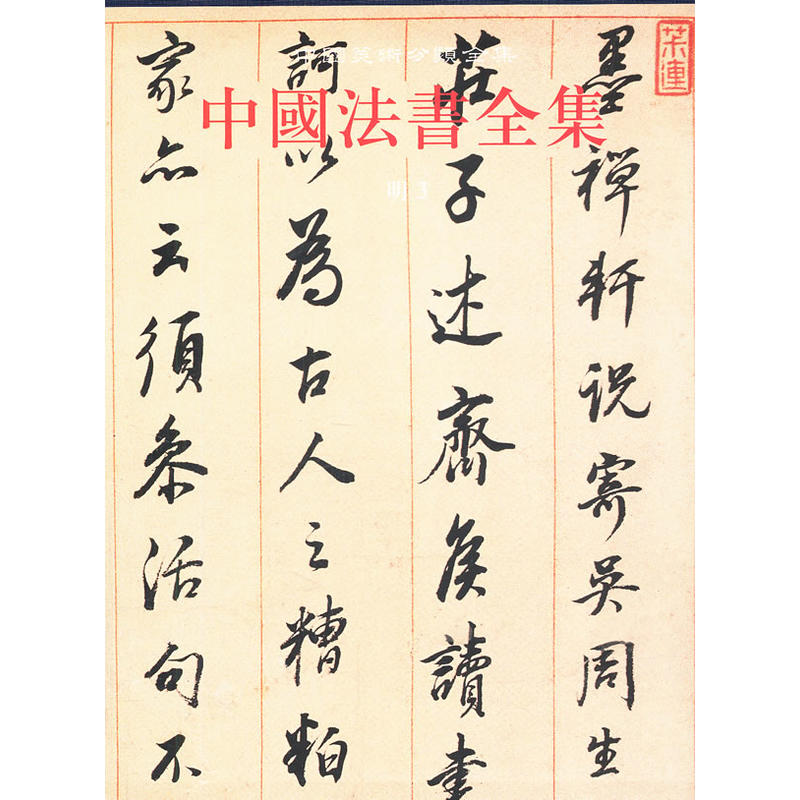 中國美術分類全集
中國法書全集
明 3
墨禪軒説寄吳周生
莊子述齊侯讀書
訶以為古人之糟粕
家亦云須參活句不